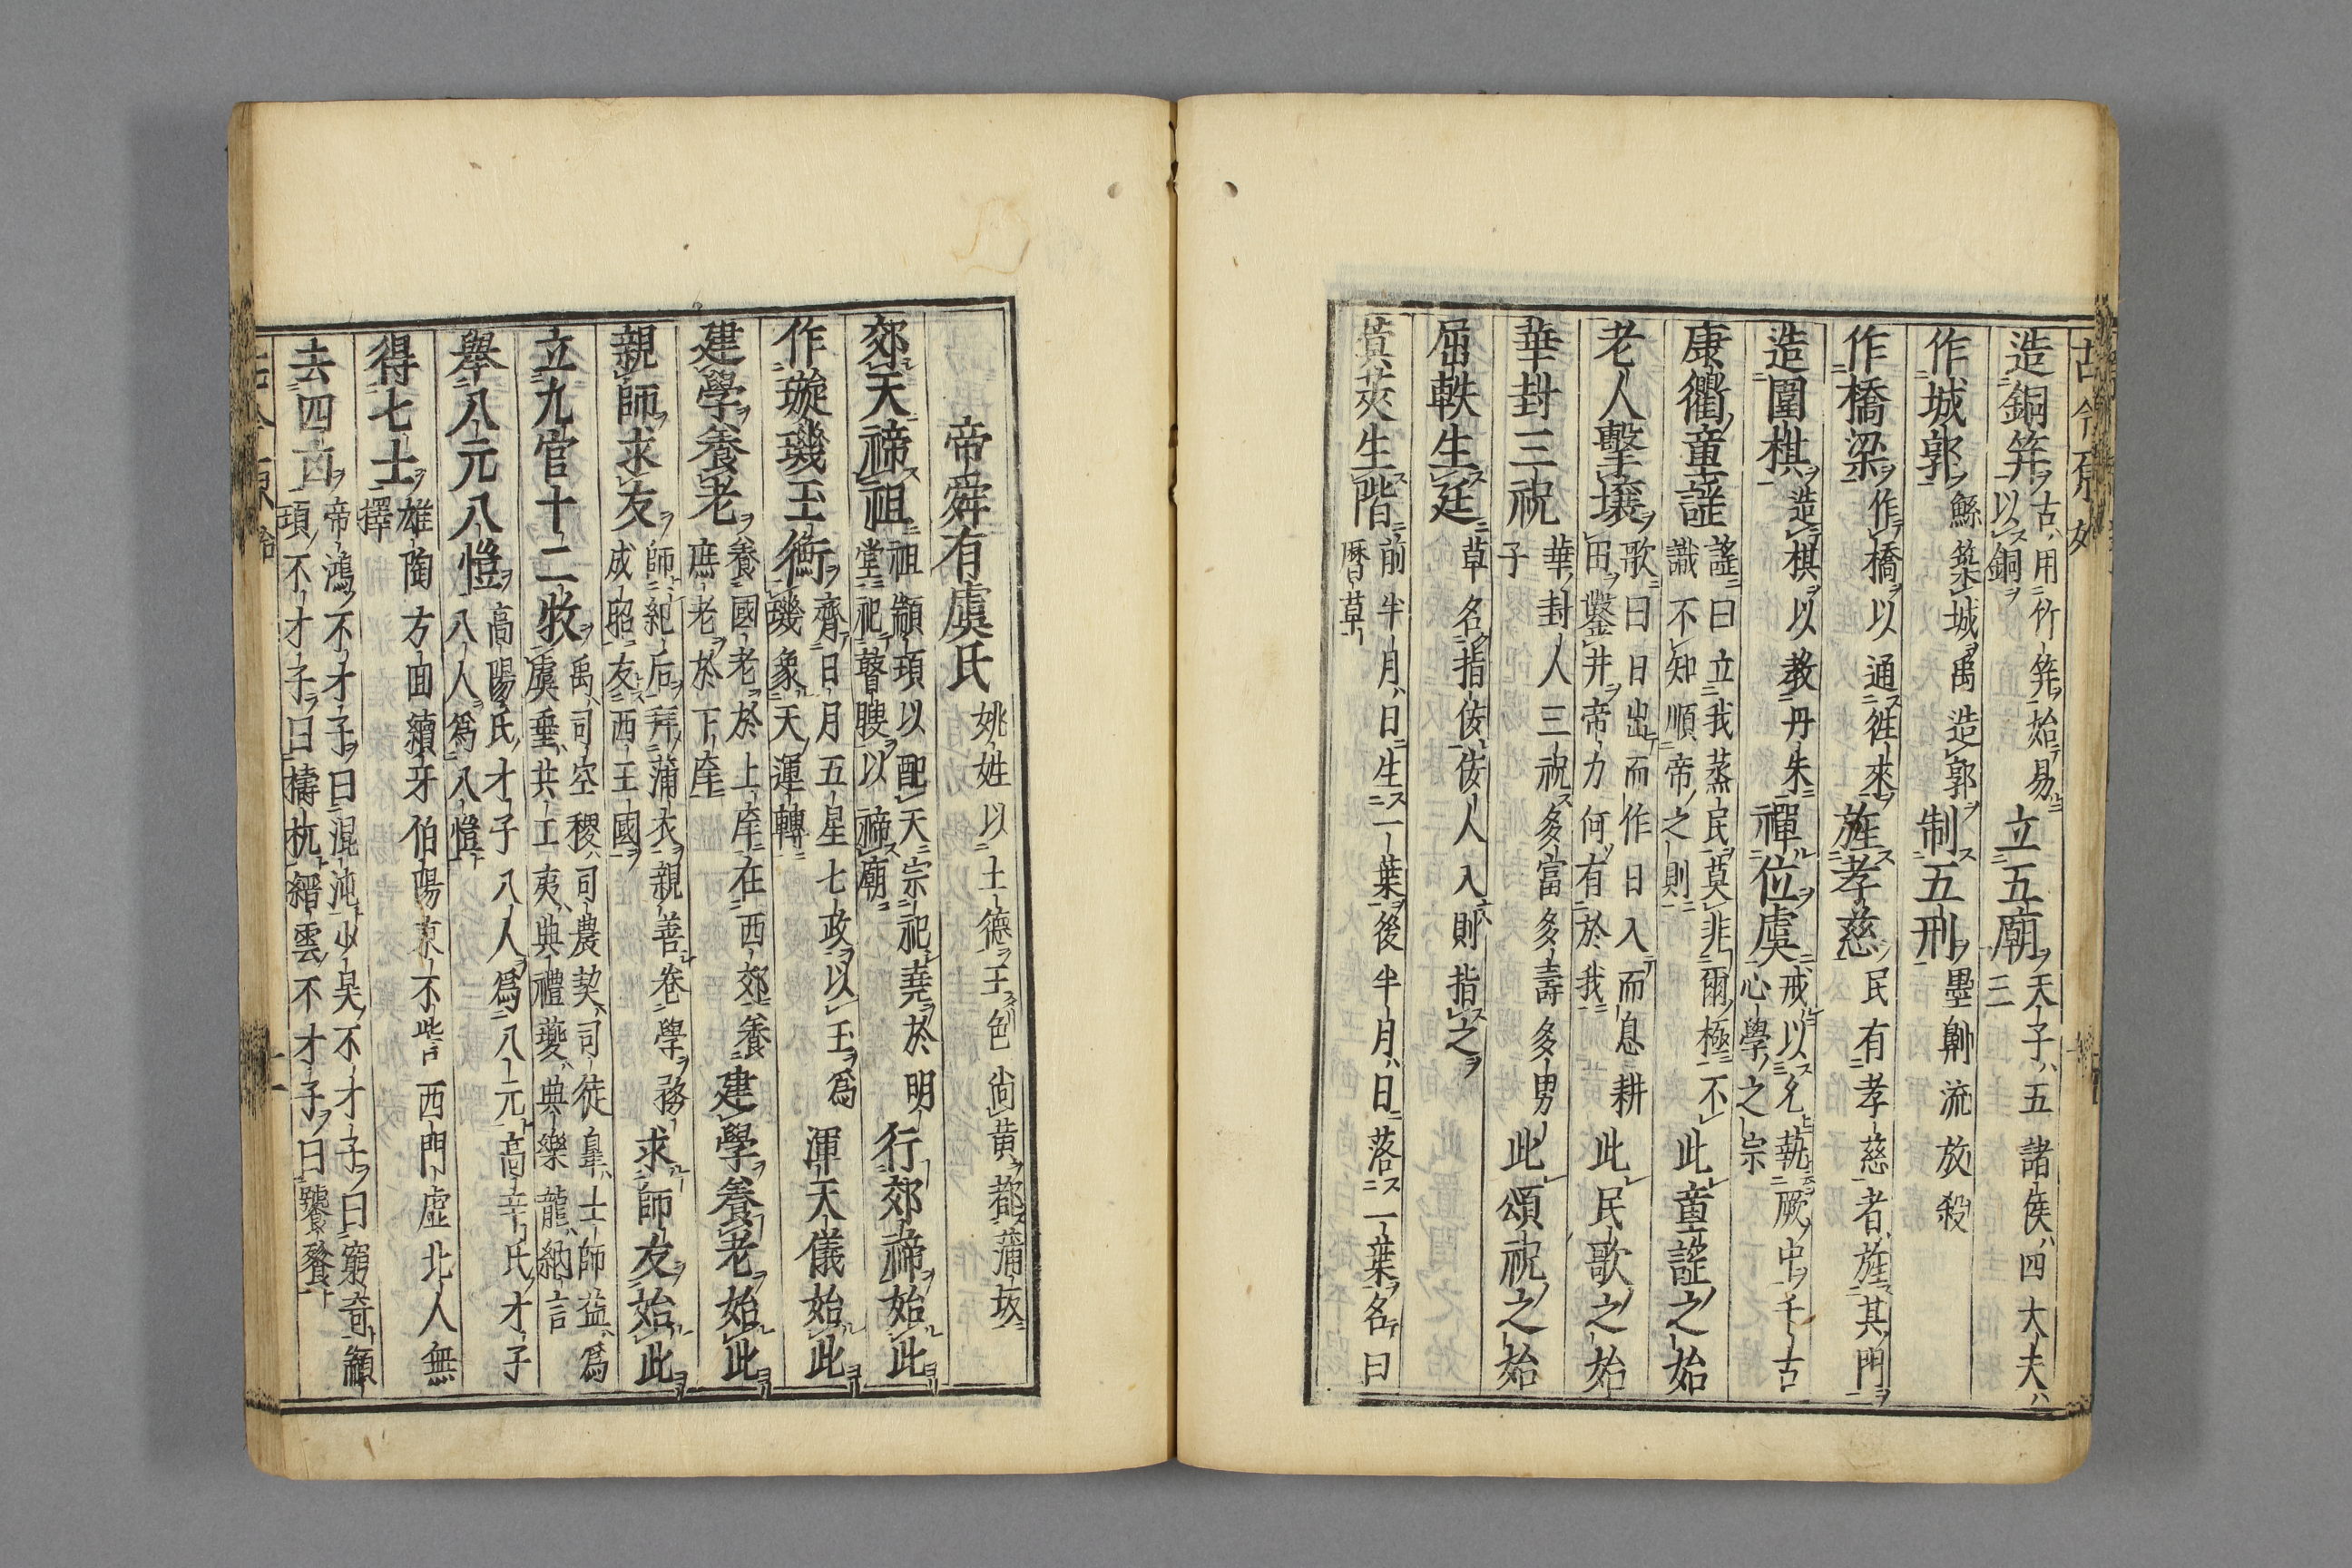 造銅筭古用竹筭始易以銅立五廟天子五諸侯四大夫三
作城郭鯀築城禹造郭制五刑墨劓流放殺
作橋梁作橋以通徃來旌孝慈民有孝慈者旌其門
造圍棋造棋以教丹朱禪位虞戒以允執厥中千古心學之宗
康衢童謡謡曰立我蒸民莫非爾極不識不知順帝之則此童謡之始
老人擊壤歌曰日出而作日入而息耕田鑿井帝力何有於我此民歌之始
華封三祝華封人三祝多富多壽多男子此頌祝之始
屈軼生廷草名指侫侫人入則指之
蓂莢生階前半月日生一葉後半月日落一葉名曰曆草
帝舜有虞氏姚姓以土德王色尚黄都蒲坂
郊天禘祖祖顓頊以配天宗祀堯於明堂祀瞽瞍以禘廟行郊禘始此
作璇璣玉衡齊日月五星七政以玉爲璣象天運轉渾天儀始此
建學養老養國老於上庠在西郊養庶老於下庠建學養老始此
親師求友師紀后拜蒲衣親善卷學務成昭友西王國求師友始此
立九官十二牧禹司空稷司農契司徒皐士師益爲虞垂共工夷典禮夔典樂龍納言
舉八元八愷高陽氏才子八人爲八元高辛氏才子八人爲八愷
得七士雄陶方回續牙伯陽東不訾西門虚北人無擇
去四凶帝鴻不才子曰混沌少昊不才子曰窮奇顓頊不才子曰檮杌縉雲不才子曰饕餮